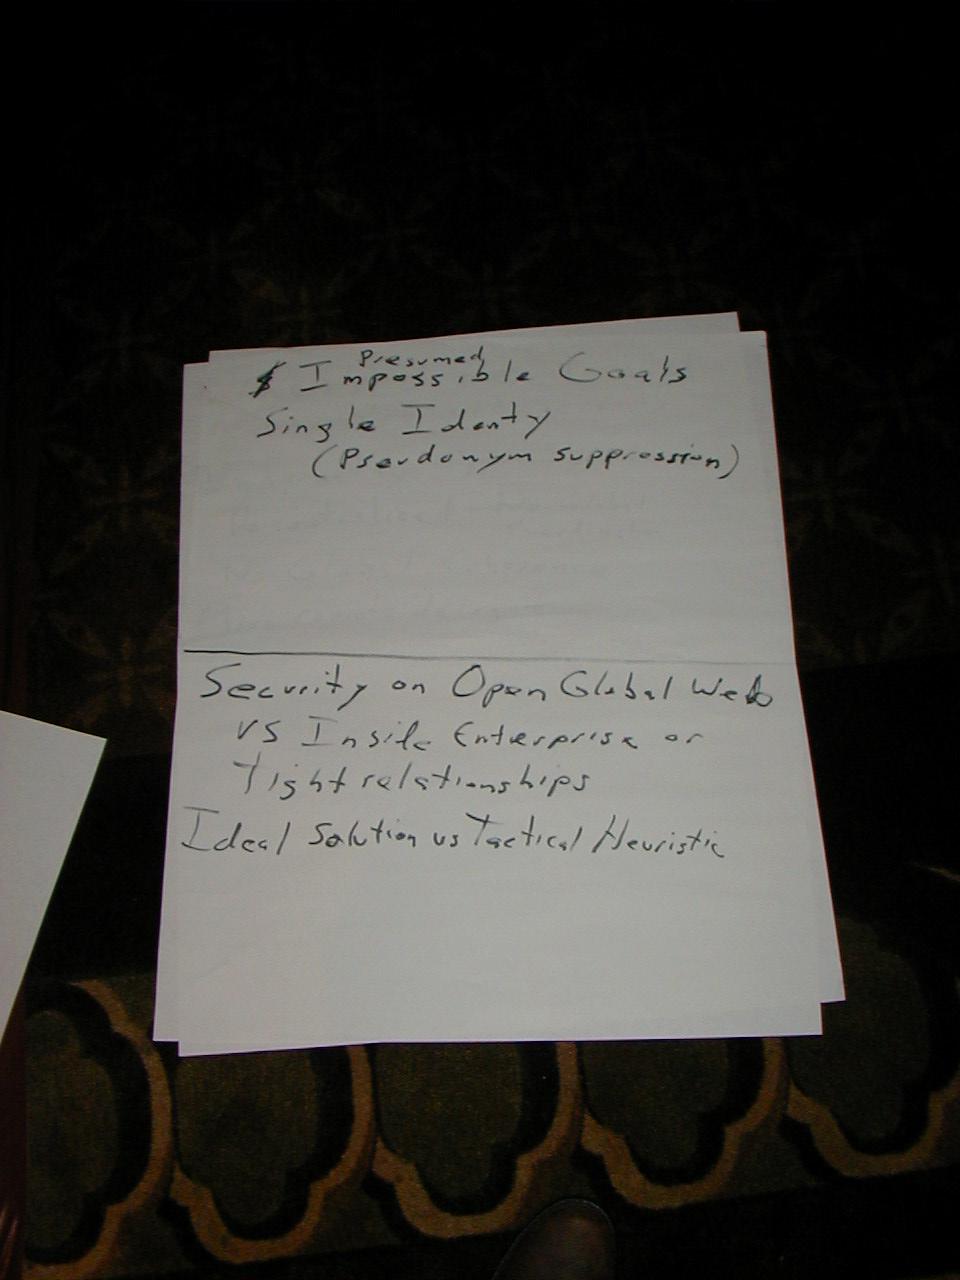 Presumed
Impossible Goals
Single Identy
(Pseudonym suppression)
Security on Open Global Web
vs Inside Enterprise or
Tight relationships
Ideal Solution vs Tactical Heuristic